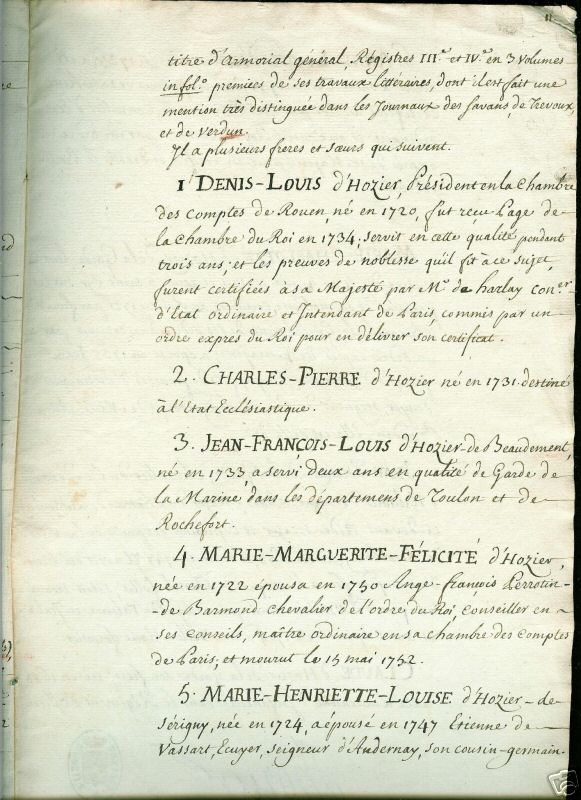 11
titre d'Armorial général, Régistres III.e et IV.e en 3 volumes
in fol.o premices de ses travaux littéraires, dont il est fait une
mention très distinguée dans les Journaux des savans, de Trevoux,
et de Verdun.
Il a plusieurs freres et sœurs qui suivent.
1 DENIS-LOUIS d'Hozier, Président en la Chambre
des Comptes de Rouen, né en 1720, fut reçu Page de
la Chambre du Roi en 1734, servit en cette qualité pendant
trois ans; et les preuves de noblesse qu'il fit à ce sujet,
furent certifiées à sa Majesté par M.r de Harlay con.er
d'Etat ordinaire et Intendant de Paris, commis par un
ordre exprés du Roi pour en délivrer son certificat.
2. CHARLES-PIERRE d'Hozier né en 1731. destiné
à l'Etat Ecclésiastique.
3. JEAN-FRANÇOIS-LOUIS d'Hozier-de Beaudement,
né en 1733, a servi deux ans en qualité de Garde de
la Marine dans les départemens de Toulon et de
Rochefort.
4. MARIE-MARGUERITE-FÉLICITÉ d'Hozier,
née en 1722 épousa en 1750 Ange-françois Perrotin-
de Barmond chevalier de l'ordre du Roi, conseiller en
ses conseils, maître ordinaire en sa chambre des comptes
de Paris; et mourut le 15 mai 1752.
5. MARIE-HENRIETTE-LOUISE d'Hozier-de
Sérigny, née en 1724, a épousé en 1747 Etienne de
Vassart, Ecuyer, seigneur d'Andernay, son cousin-germain.